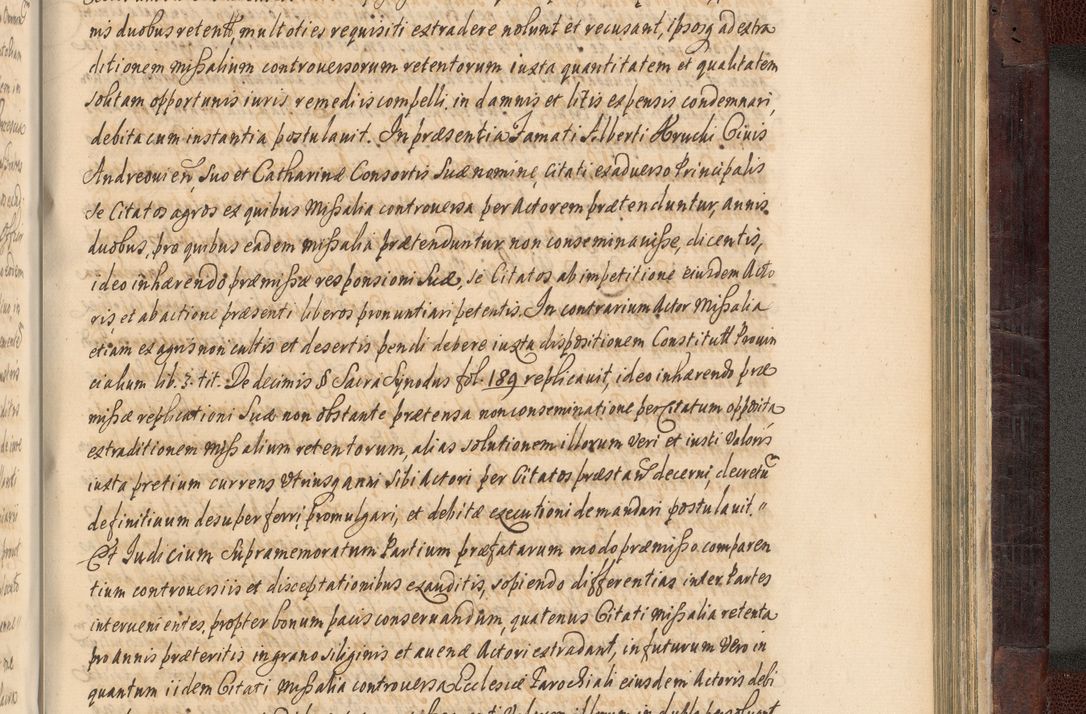 nis duobus retentt, multoties requisiti extradere nolunt et recusant, ipsosq ad extra
ditionem missalium controversorum retentorum iuxta quantitatem et qualitatem
solitam opportunis iuris remediis compelli, in damnis et litis expensis condemnari,
debita cum instantia postulavit. In præsentia Famati Alberti Kruchi Civis
Andreovien, suo et Catharinæ Consortis suæ nomine, Citati ex adverso Principalis
se Citatos agros ex quibus Missalia controversa per Actorem prætenduntur, annis
duobus, pro quibus eadem missalia prætenduntur, non conseminavisse, dicentis,
ideo inhærendo præmissæ responsioni suæ, se Citatos ab impetitione eiusdem Acto
ris, et ab actione præsenti liberos pronuntiari petentis. In contrarium Actor Missalia
etiam ex agris non cultis et desertis pendi debere iuxta dispositionem Constitutt Provin
cialium lib. 3. tit. De decimis § Sacra Synodus fol. 189 replicavit, ideo inhærendo præ
missæ replicationi suæ non obstante prætensa non conseminatione per Citatum opposita
extraditionem Missalium retentorum, alias solutionem illorum veri et iusti valoris
iuxta pretium currens utriusq anni sibi Actori per Citatos præstan decerni, decretu
definitivum desuper ferri, promulgari, et debitæ executioni demandari postulavit. "
Et Iudicium supramemoratum Partium præfatarum modo præmisso comparen
tium controversiis et disceptationibus exauditis, sopiendo differentias inter Partes
intervenientes, propter bonum pacis conservandum, quatenus Citati missalia retenta
pro annis præteritis in grano siliginis et avenæ Actori extradant, in futurum vero in
quantum iidem Citati missalia controversa Ecclesiæ Parochiali eiusdem Actoris debi